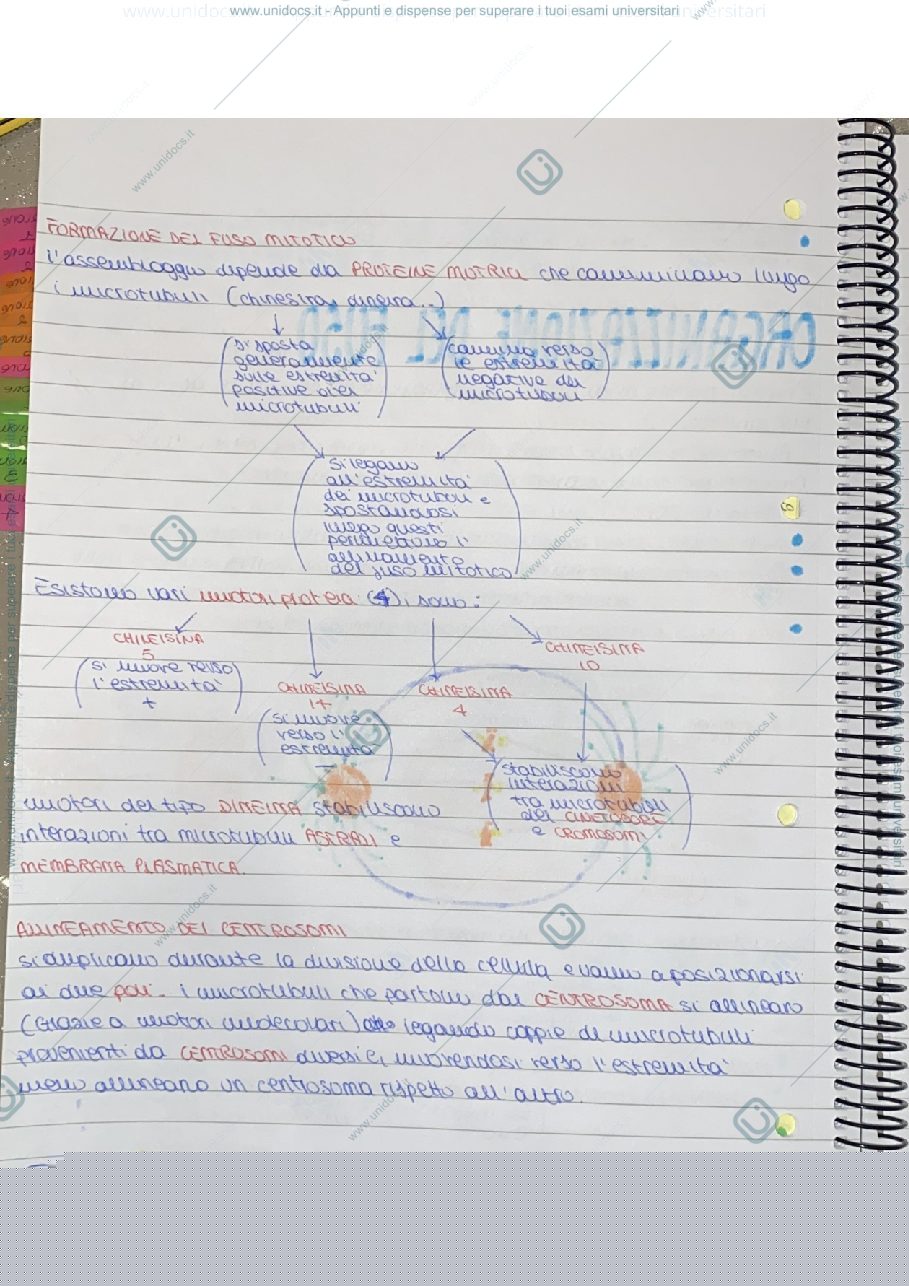 www.unidocs.it - Appunti e dispense per superare i tuoi esami universitari
FORMAZIONE DEL FUSO MITOTICO
L'assemblaggio dipende da PROTEINE MOTRICI che camminano lungo
i microtubuli (chinesina, dineina..)
si sposta
generalmente
sulle estremità
positive dei
microtubuli
cammina verso
le estremità
negative dei
microtubuli
si legano
all'estremità
dei microtubuli e
spostandosi
lungo questi
permettono l'
allineamento
del fuso mitotico
Esistono vari motori proteici (4), sono:
CHINEISINA
5
si muove verso
l'estremità
+
CHINEISINA
14
si muove
verso l'
estremità
-
CHINEISINA
4
CHINEISINA
10
stabiliscono
interazioni
tra microtubuli
dei CINETOCORI
e CROMOSOMI
motori del tipo DINEINA stabiliscono
interazioni tra microtubuli ASTRALI e
MEMBRANA PLASMATICA.
ALLINEAMENTO DEI CENTROSOMI
si duplicano durante la divisione della cellula e vanno a posizionarsi
ai due poli. i microtubuli che partono dal CENTROSOMA si allineano
(Grazie a motori molecolari) legando coppie di microtubuli
provenienti da CENTROSOMI diversi e, muovendosi verso l'estremità
meno allineano un centrosoma rispetto all'altro.
www.unidocs.it
www.unidocs.it
www.unidocs.it
www.unidocs.it